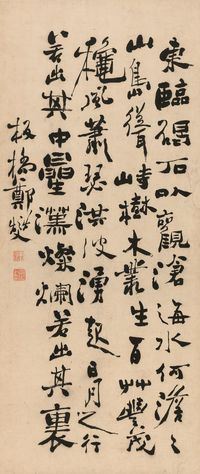 東臨碣石以觀滄海水何澹〻
山島聳峙樹木叢生百艸豐茂
龝風蕭瑟洪波湧起日月之行
若出其中曐漢燦爛若出其裏
板橋鄭燮